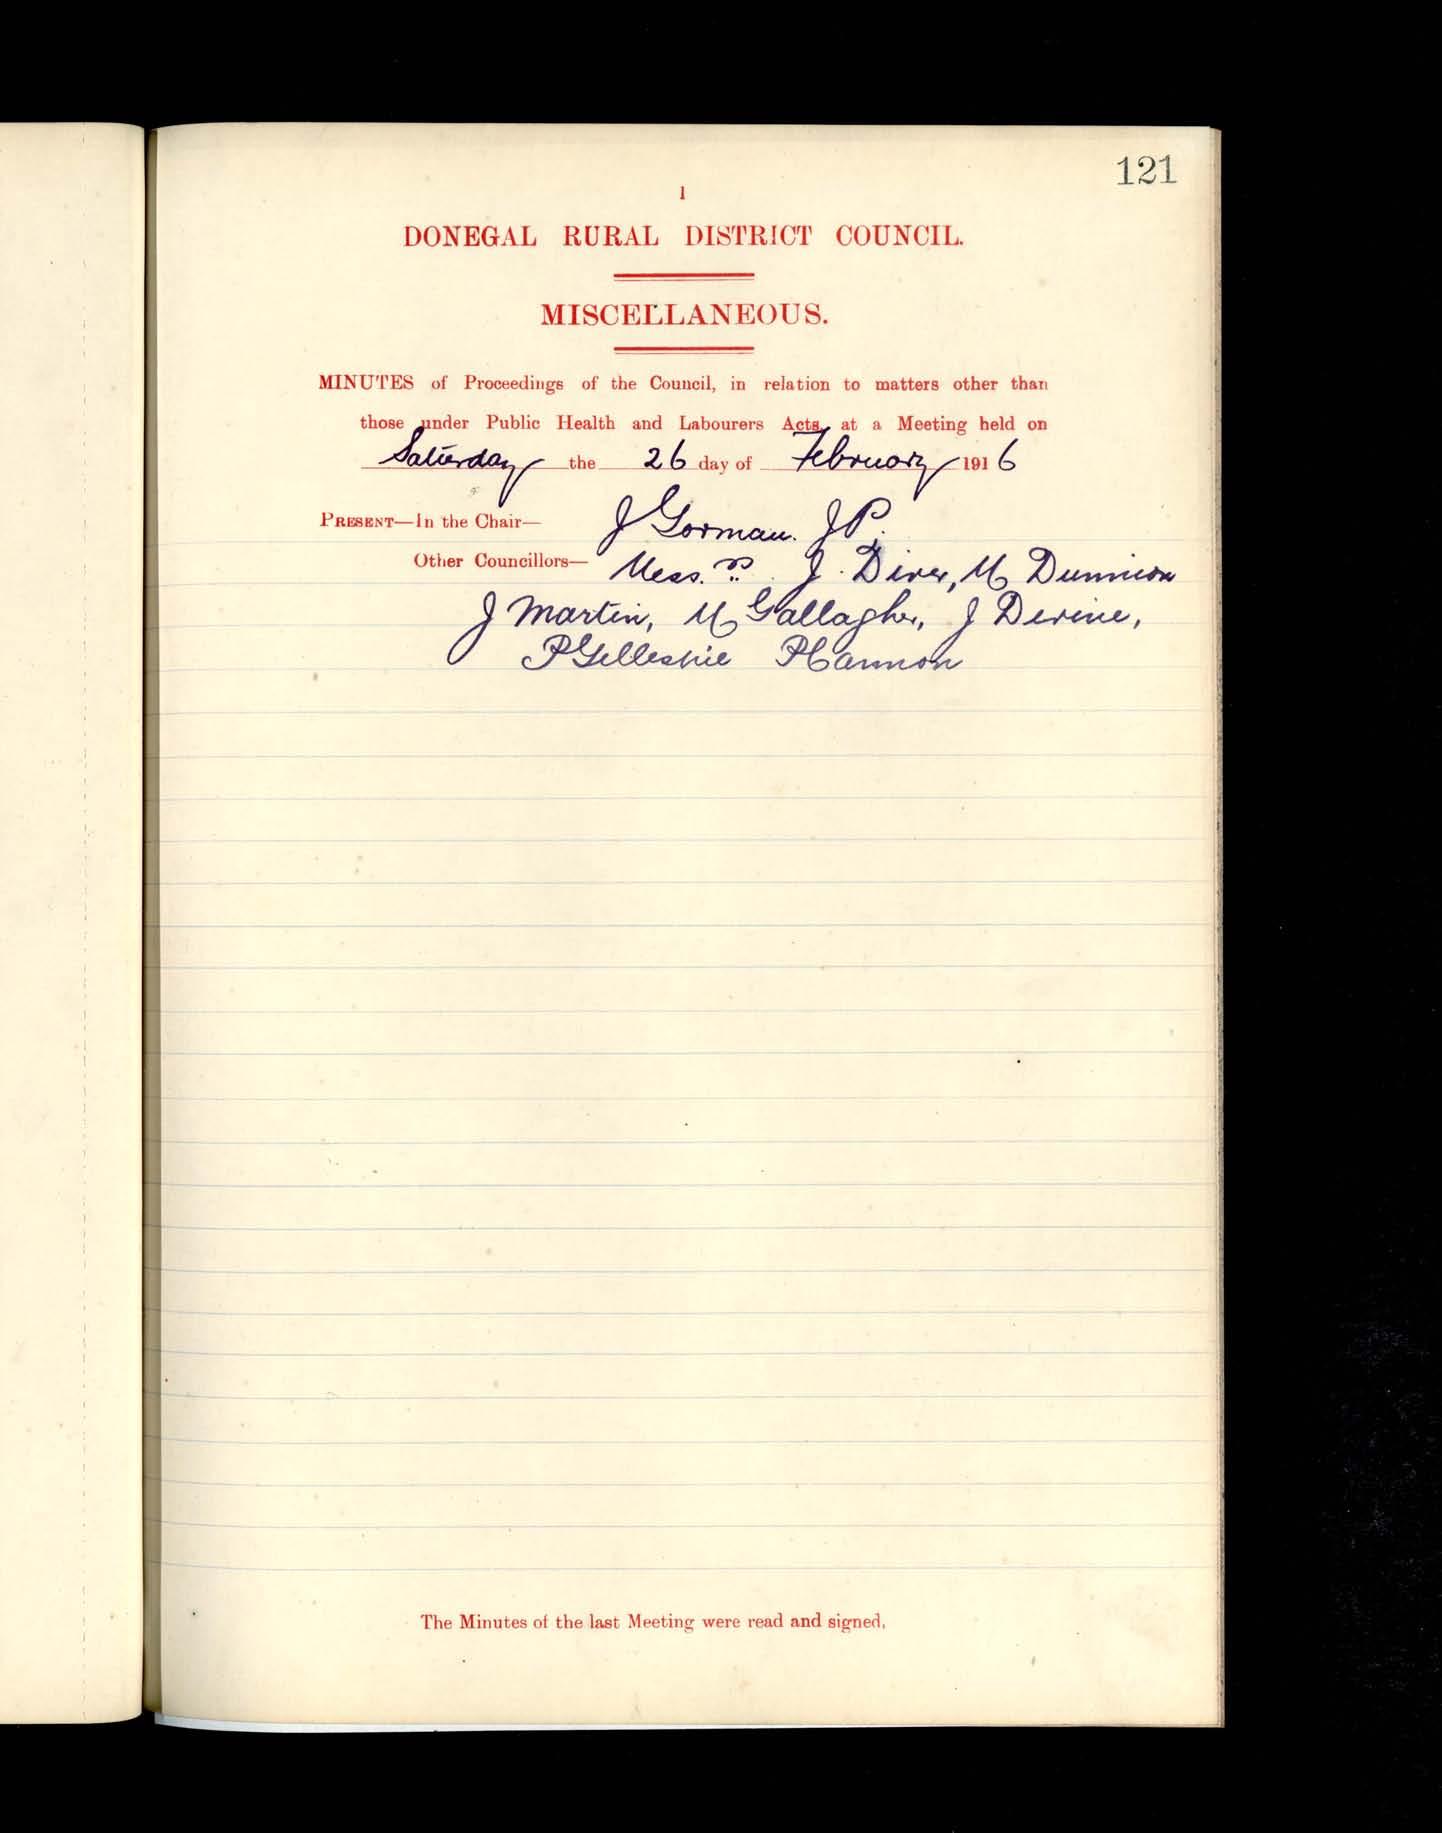 121
1
DONEGAL RURAL DISTRICT COUNCIL.
MISCELLANEOUS.
MINUTES of Proceedings of the Council, in relation to matters other than
those under Public Health and Labourers Acts, at a Meeting held on
Saturday the 26 day of February 1916
PRESENT—In the Chair— J Gorman. J P.
Other Councillors— Mess.rs J. Diver, M Dunnion
J Martin, M Gallagher, J Devine,
P Gillespie P Cannon
The Minutes of the last Meeting were read and signed,